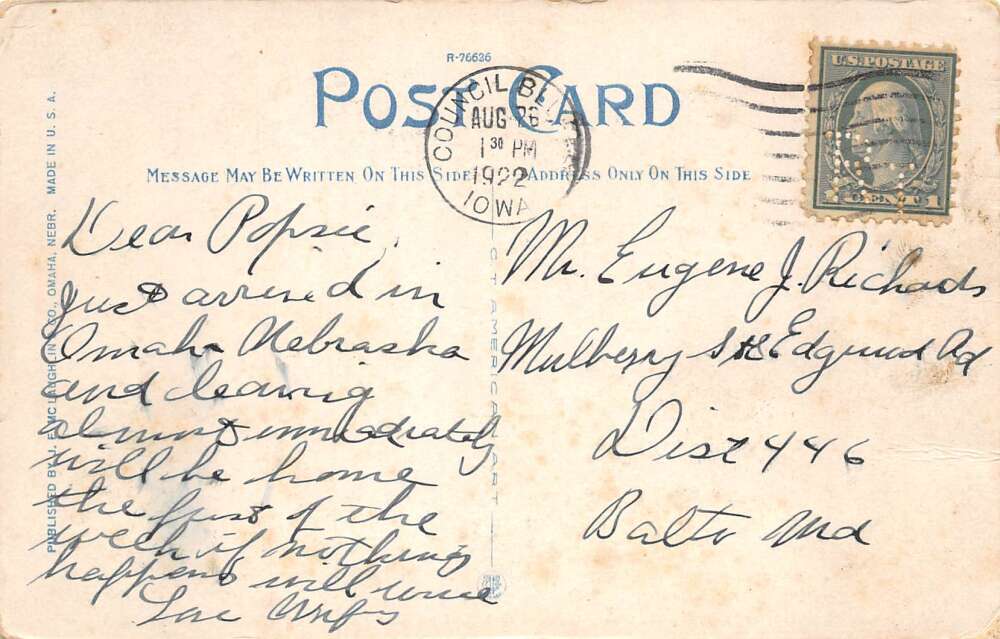 R-76626
POST CARD
MESSAGE MAY BE WRITTEN ON THIS SIDE
ADDRESS ONLY ON THIS SIDE
COUNCIL BLUFFS
AUG 26
1 30 PM
1922
IOWA
U.S. POSTAGE
1
PUBLISHED BY J. F. MCLAUGHLIN CO., OMAHA, NEBR. MADE IN U. S. A.
CT AMERICAN ART
Dear Popsie,
Just arrived in
Omaha Nebraska
and leaving
almost immediately
will be home
the first of the
week if nothing
happens will wire
Love
Mr. Eugene J. Richards
Mulberry St & Edgwood Rd
Dist 446
Balto Md